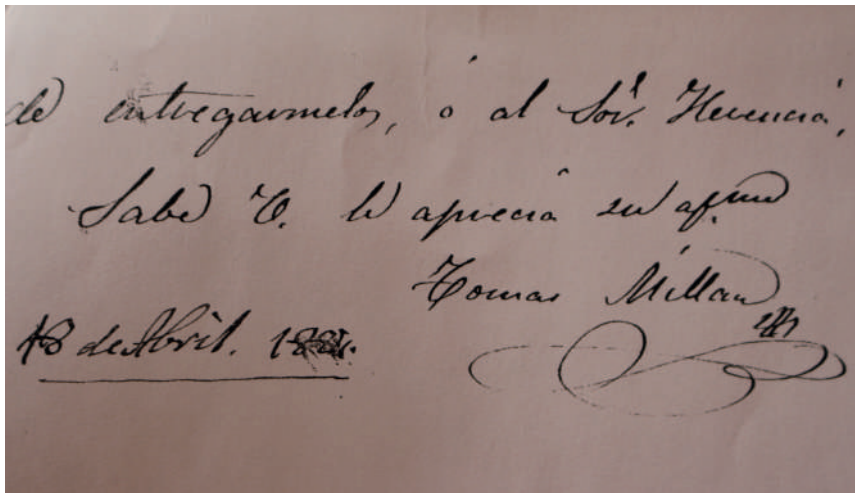 de entregarmelos, ó al Sor. Herencia,
Sabe V. le aprecia su afmo
Tomas Millan
18 de Abril. 188